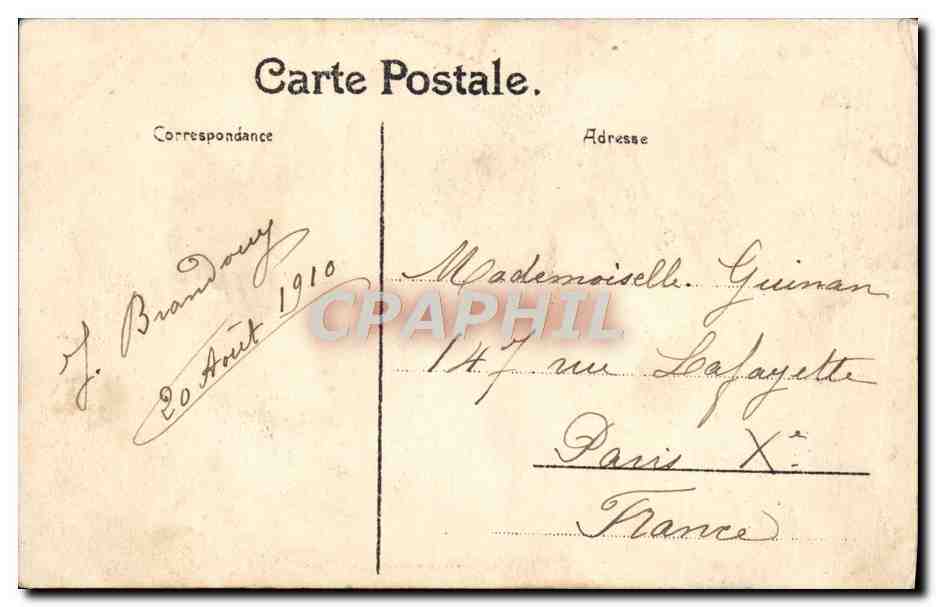 Carte Postale.
Correspondance
Adresse
J. Brandouy
20 Août 1910
Mademoiselle. Guinan
147 rue Lafayette
Paris Xe.
France
CPAPHIL